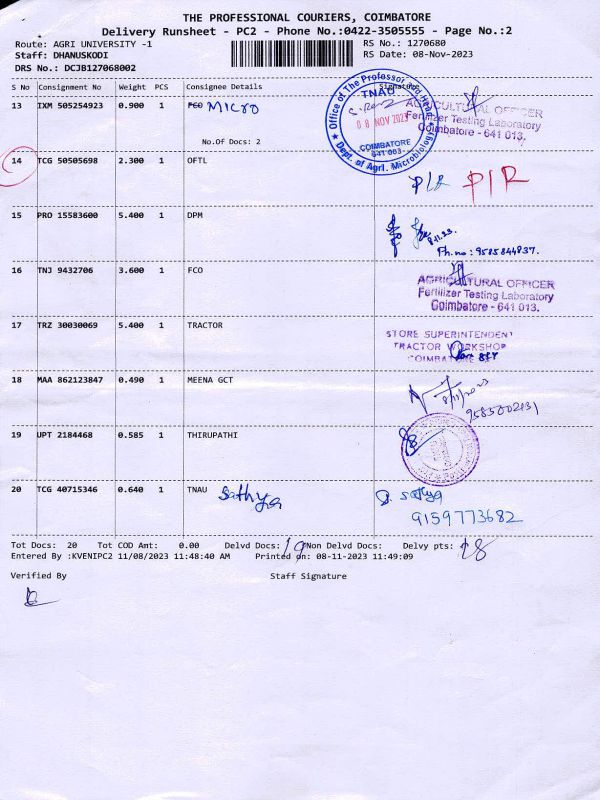 THE PROFESSIONAL COURIERS, COIMBATORE
Delivery Runsheet - PC2 - Phone No.:0422-3505555 - Page No.:2
Route: AGRI UNIVERSITY -1 RS No.: 1270680
Staff: DHANUSKODI RS Date: 08-Nov-2023
DRS No.: DCJB127068002
S No Consignment No Weight PCS Consignee Details Signature
13 IXM 505254923 0.900 1 FCO MICRO
No.Of Docs: 2
Office of The Professor and Head
TNAU
08 NOV 2023
COIMBATORE
641 003
Dept. of Agrl. Microbiology
AGRICULTURAL OFFICER
Fertilizer Testing Laboratory
Coimbatore - 641 013.
14 TCG 50505698 2.300 1 OFTL
P/R P/R
15 PRO 15583600 5.400 1 DPM
8.11.23.
Ph.no: 9585844837.
16 TNJ 9432706 3.600 1 FCO
AGRICULTURAL OFFICER
Fertilizer Testing Laboratory
Coimbatore - 641 013.
17 TRZ 30030069 5.400 1 TRACTOR
STORE SUPERINTENDENT
TRACTOR WORKSHOP
18 MAA 862123847 0.490 1 MEENA GCT
8/11/2023
19 UPT 2184468 0.585 1 THIRUPATHI
20 TCG 40715346 0.640 1 TNAU Sathya
Sathya
9159773682
Tot Docs: 20 Tot COD Amt: 0.00 Delvd Docs: 19 Non Delvd Docs: Delvy pts: 18
Entered By :KVENIPC2 11/08/2023 11:48:40 AM Printed on: 08-11-2023 11:49:09
Verified By Staff Signature